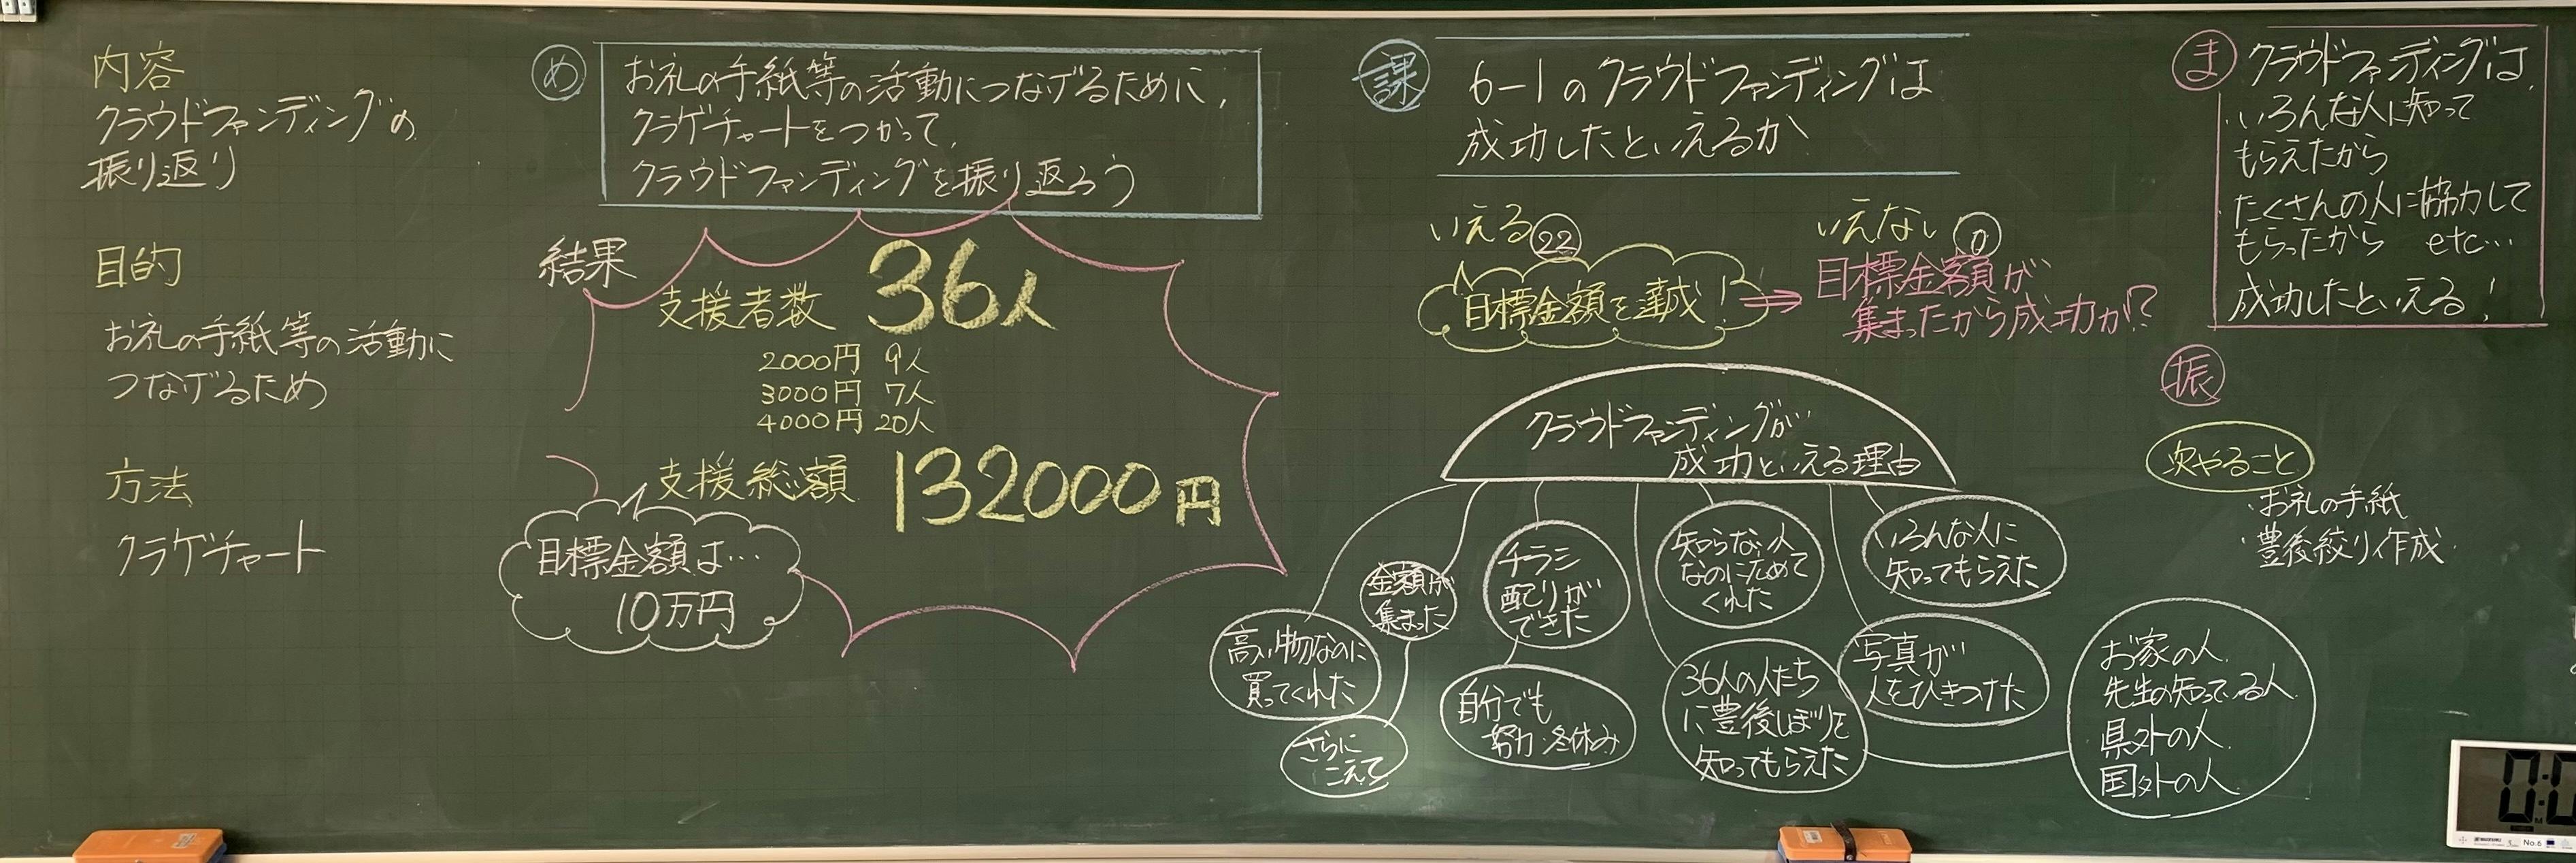 内容
クラウドファンディングの
振り返り
目的
お礼の手紙等の活動に
つなげるため
方法
クラゲチャート
め
お礼の手紙等の活動につなげるために、
クラゲチャートをつかって、
クラウドファンディングを振り返ろう
結果
支援者数 36人
2000円 9人
3000円 7人
4000円 20人
支援総額 132000円
目標金額は…
10万円
課
6-1のクラウドファンディングは
成功したといえるか
いえる 22
目標金額を達成!
いえない 0
目標金額が
集まったから成功か?
クラウドファンディングが
成功といえる理由
高い物なのに
買ってくれた
金額が
集まった
さらに
こえて
チラシ
配りが
できた
自分でも
努力・冬休み
知らない人
なのにためて
くれた
36人の人たち
に豊後しぼりを
知ってもらえた
いろんな人に
知ってもらえた
写真が
人をひきつけた
お家の人
先生の知っている人
県外の人
国外の人
ま
クラウドファンディングは、
いろんな人に知って
もらえたから
たくさんの人に協力して
もらったから etc…
成功したといえる!
振
次やること
・お礼の手紙
・豊後絞り作成
SUZUKI
No.6